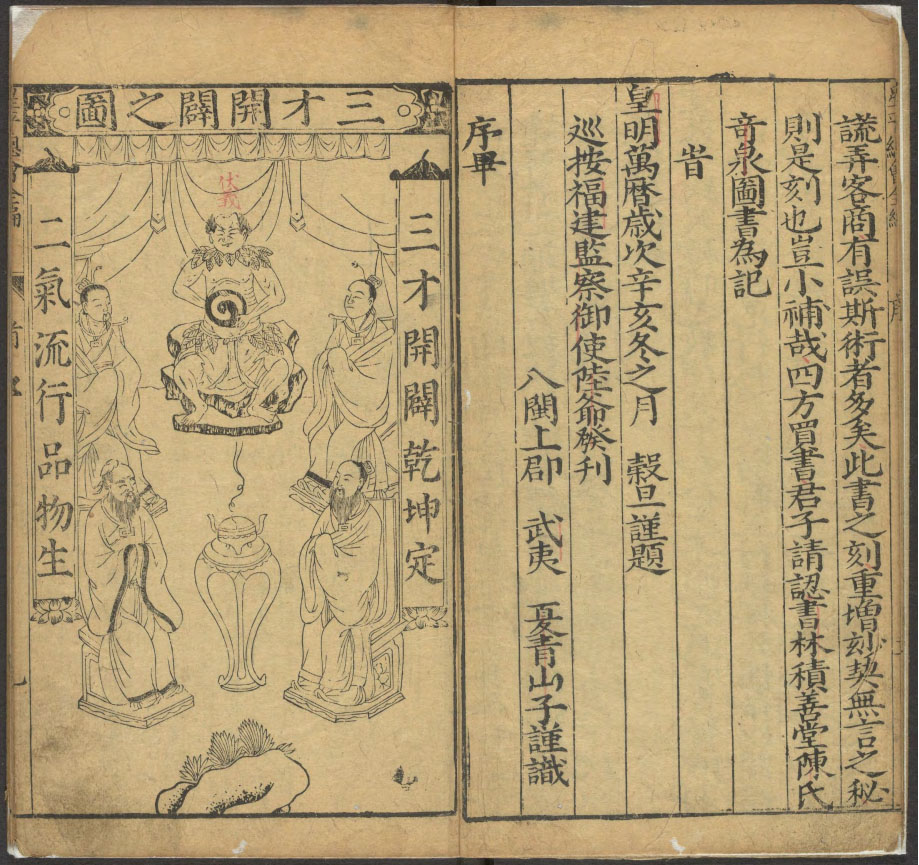 謊弄客商有誤斯術者多矣此書之刻重增妙契無言之秘
則是刻也豈小補哉四方買書君子請認書林積善堂陳氏
奇泉圖書為記
旹
皇明萬曆歲次辛亥冬之月 穀旦謹題
巡按福建監察御使陸爺發刊
八閩上郡 武夷 夏青山子謹識
序畢
三才開闢之圖
三才開闢乾坤定
伏羲
二氣流行品物生